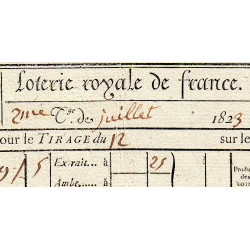 Loterie royale de france.
2me Tge. de juillet 1823
our le TIRAGE du 12 sur le
5 Extrait... à 25
Produ
Ambe...... à